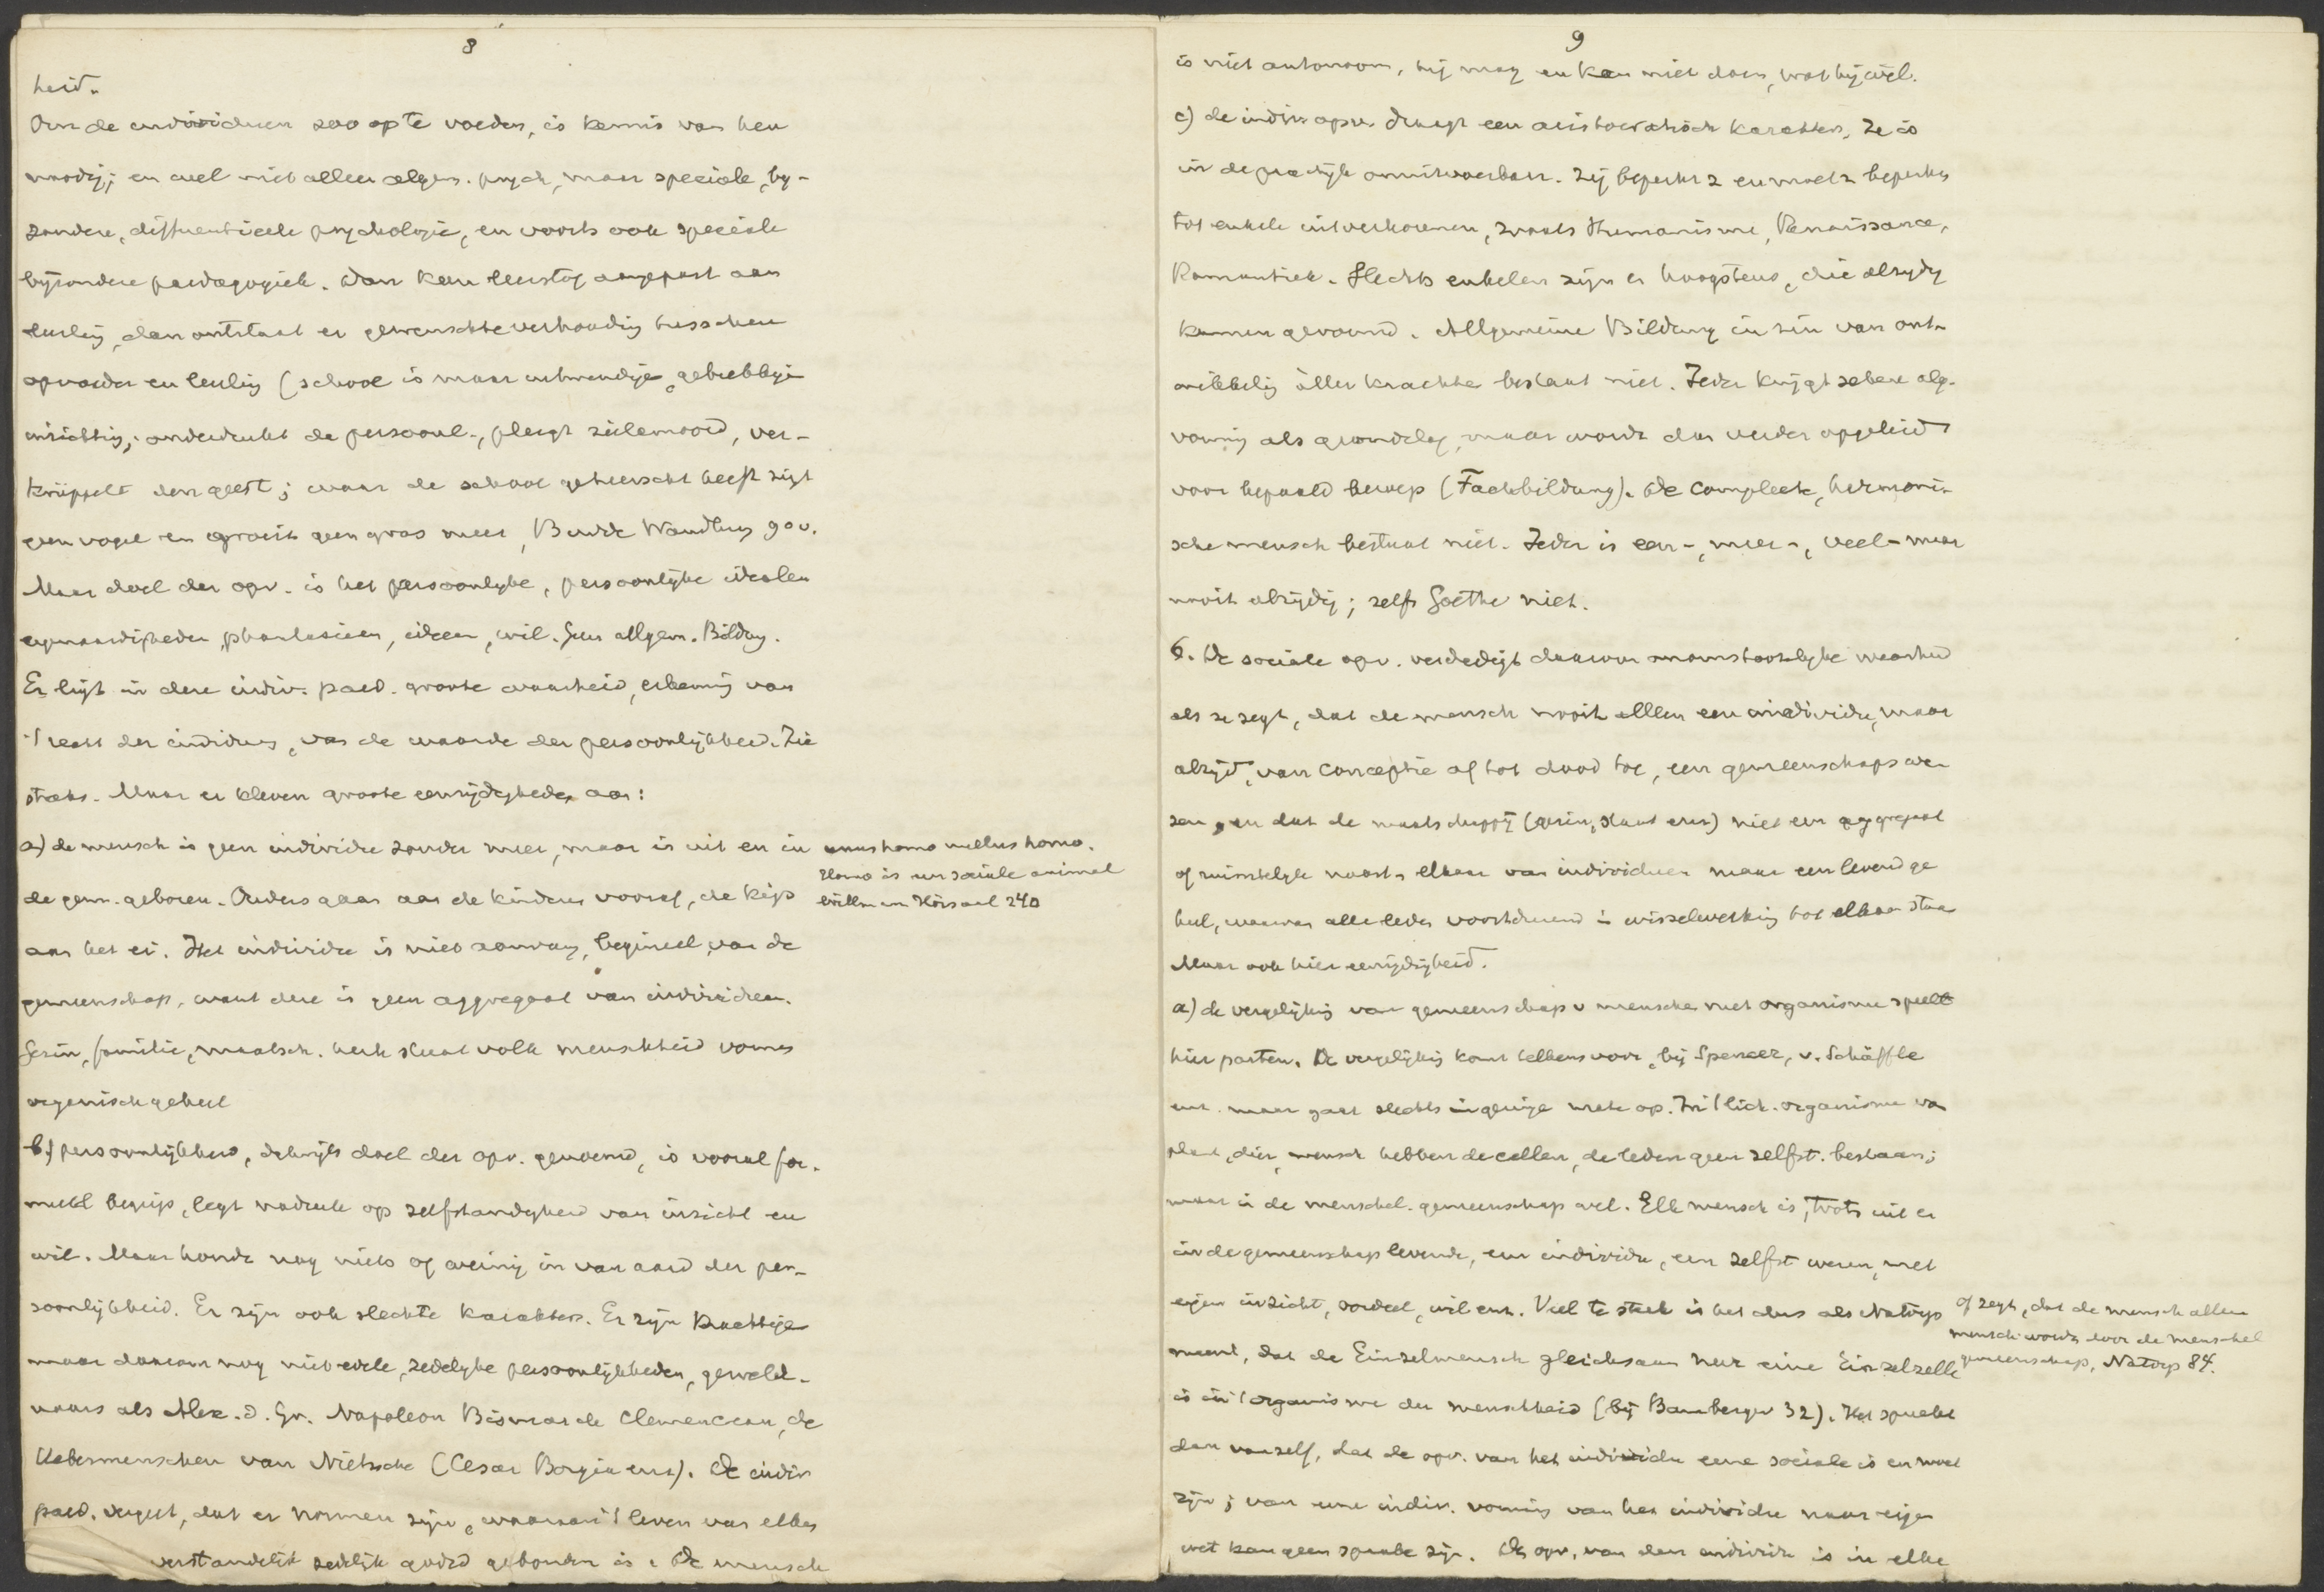 8
heid.
Om de individuen zoo op te voeden, is kennis van hen
noodig; en wel niet alleen algem. psych, maar speciale, by-
zondere, differentieele psychologie, en voorts ook speciale
byzondere paedagogiek. Dan kan leerstof aangepast aan
leerling, dan ontstaat er gewenschte verhouding tusschen
opvoeder en leerling (school is maar uitwendige, gebrekkige
inrichting; onderdrukt de persoonl., pleegt zielemoord, ver-
krüppelt den geest; waar de school geheerscht heeft zingt
geen vogel en groeit geen gras meer, Budde Wandlung 90v.
Maar doel der opv. is het persoonlyke, persoonlijke idealen
eigenaardigheden, phantasieen, ideeen, wil. Geen allgem. Bildung.
Er ligt in deze indiv. paed. groote waarheid, erkenning van
't recht der individus, van de waarde der persoonlijkheid. Zie
straks. Maar er kleven groote eenzijdigheden aan:
a) de mensch is geen individu zonder meer, maar is uit en in
de gem. geboren. Ouders gaan aan de kinderen vooraf, de kip
aan het ei. Het individu is niet aanvang, beginsel, van de
gemeenschap, want deze is geen aggregaat van individuen.
Gezin, familie, maatsch. kerk staat volk menschheid vormen
organisch geheel
b) persoonlijkheid, dikwijls doel der opv. genoemd, is vooral for-
meel begrip, legt nadruk op zelfstandigheid van inzicht en
wil. Maar houdt nog niets of weinig in van aard der per-
soonlijkheid. Er zijn ook slechte karakters. Er zijn krachtige
maar daarom nog niet edele, zedelyke persoonlijkheden, geweld-
enaars als Alex. d. Gr. Napoleon Bismarck Clemenceau, de
Uebermenschen van Nietzsche (Cesar Borgia enz). De indiv
paed. vergeet, dat er normen zijn, waaraan 't leven van elken
verstandelijk zedelijk godsd gebonden is. De mensch
unus homo nullus homo.
Homo is een sociale animal
Willmann Hörsaal 240
9
is niet autonoom, hij mag en kan niet doen, wat hij wil.
c) de indiv. opv. draagt een aristocratisch karakter, ze is
in de practijk onuitvoerbaar. Zij beperkt z en moet z beperken
tot enkele uitverkorenen, zooals Humanisme, Renaissance,
Romantiek. Slechts enkelen zijn er hoogstens, die alzydig
kunnen gevormd. Allgemeine Bildung in zin van ont-
wikkeling àller krachten bestaat niet. Ieder krijgt zekere alg.
vorming als grondslag, maar wordt dan verder opgeleid
voor bepaald beroep (Fachbildung). De compleete, harmoni-
sche mensch bestaat niet. Ieder is een-, meer-, veel- maar
nooit alzijdig; zelfs Goethe niet.
6. De sociale opv. verdedigt daarom onomstootelyke waarheid
als ze zegt, dat de mensch nooit alleen een individu, maar
altijd, van conceptie af tot dood toe, een gemeenschapswe-
zen, en dat de maatschappij (gezin, staat enz) niet een aggregaat
of ruimtelyk naast elkaar van individuen maar een levend ge
heel, waarvan alle leden voortdurend in wisselwerking tot elkaar staan
Maar ook hier eenzijdigheid.
a) de vergelijking van gemeenschap v menschen met organisme speelt
hier parten. De vergelijking komt telkens voor, bij Spencer, v. Schäffle
enz. maar gaat slechts in geringe mate op. In 't lich. organisme van
plant, dier, mensch hebben de cellen, de leden geen zelfst. bestaan;
maar in de menschel. gemeenschap wel. Elk mensch is, trots uit en
in de gemeenschap levende, een individu, een zelfst wezen, met
eigen inzicht, oordeel, wil enz. Veel te sterk is het dus als Natorp
meent, dat de Einzelmensch gleichsam nur eine Einzelzelle
is in 't organisme der menschheid (bij Bamberger 32). Het spreekt
dan vanzelf, dat de opv. van het individu eene sociale is en moet
zijn; van eene indiv. vorming van het individu naar eigen
wet kan geen sprake zijn. De opv. van den individu is in elke
of zegt, dat de mensch alleen
mensch wordt door de menschel
gemeenschap, Natorp 84.